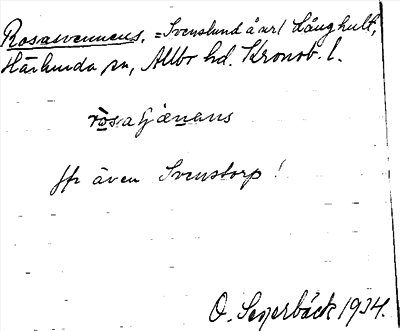 Rosasvennens, = Svenslund å arl Långhult,
Härlunda sn, Allbo hd. Kronob. l.
rosasjænans
Jfr även Svenstorp!
O. Segerbäck 1934.